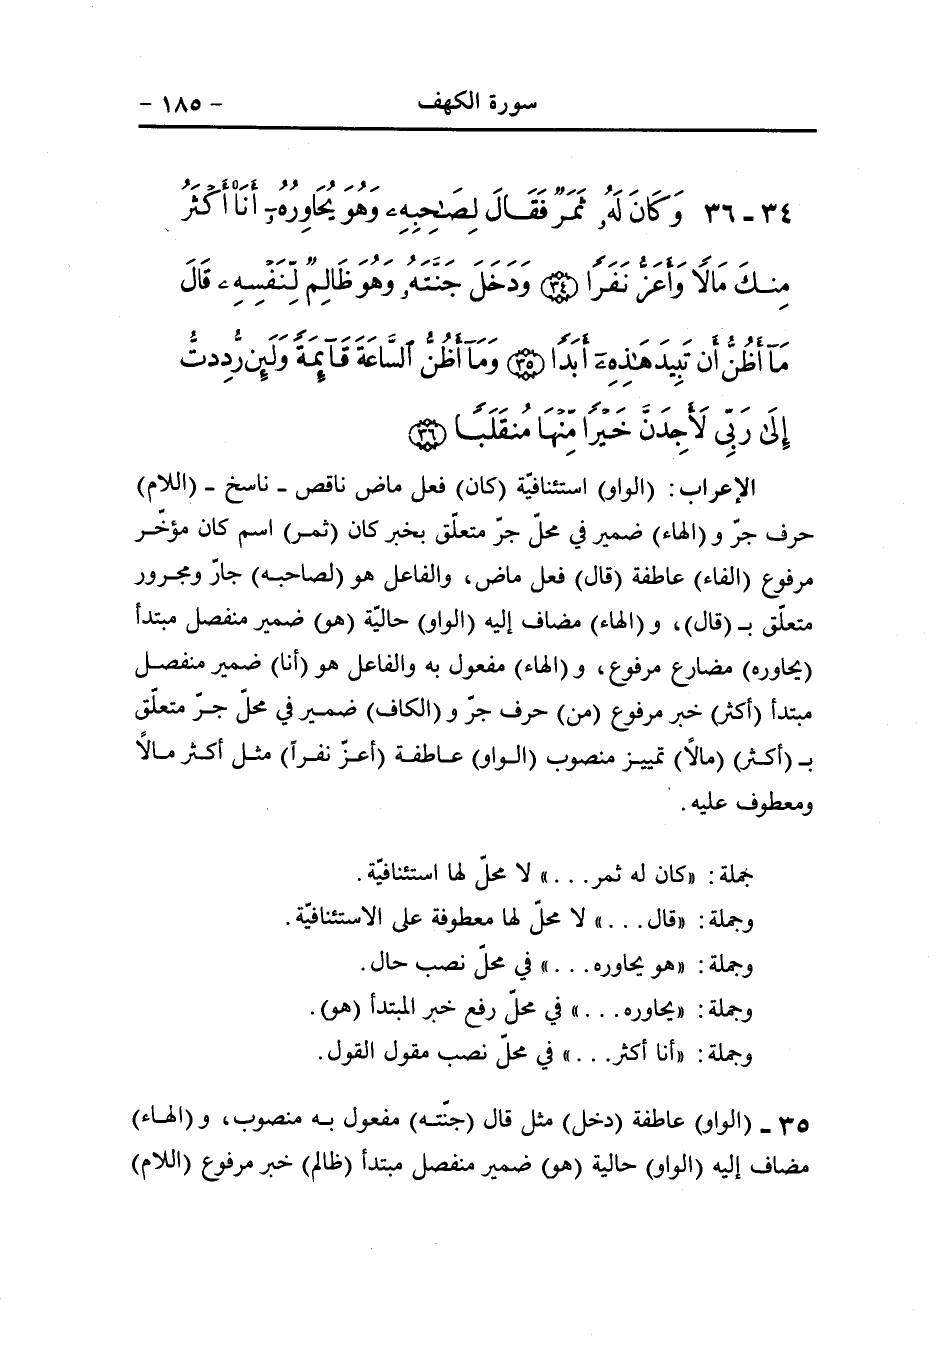 سورة الكهف - ١٨٥ -
٣٤ - ٣٦ وَكَانَ لَهُۥ ثَمَرٌ فَقَالَ لِصَٰحِبِهِۦ وَهُوَ يُحَاوِرُهُۥٓ أَنَا۠ أَكْثَرُ
مِنكَ مَالًا وَأَعَزُّ نَفَرًا ٣٤ وَدَخَلَ جَنَّتَهُۥ وَهُوَ ظَالِمٌ لِّنَفْسِهِۦ قَالَ
مَآ أَظُنُّ أَن تَبِيدَ هَٰذِهِۦٓ أَبَدًا ٣٥ وَمَآ أَظُنُّ ٱلسَّاعَةَ قَآئِمَةً وَلَئِن رُّدِدتُّ
إِلَىٰ رَبِّى لَأَجِدَنَّ خَيْرًا مِّنْهَا مُنقَلَبًا ٣٦
الإعراب: (الواو) استئنافيّة (كان) فعل ماض ناقص ـ ناسخ ـ (اللام)
حرف جرّ و (الهاء) ضمير في محلّ جرّ متعلّق بخبر كان (ثمر) اسم كان مؤخّر
مرفوع (الفاء) عاطفة (قال) فعل ماض، والفاعل هو (لصاحبه) جارّ ومجرور
متعلّق بـ (قال)، و (الهاء) مضاف إليه (الواو) حاليّة (هو) ضمير منفصل مبتدأ
(يحاوره) مضارع مرفوع، و (الهاء) مفعول به والفاعل هو (أنا) ضمير منفصل
مبتدأ (أكثر) خبر مرفوع (من) حرف جرّ و (الكاف) ضمير في محلّ جرّ متعلّق
بـ (أكثر) (مالاً) تمييز منصوب (الواو) عاطفة (أعزّ نفراً) مثل أكثر مالاً
ومعطوف عليه.
جملة: «كان له ثمر...» لا محلّ لها استئنافيّة.
وجملة: «قال...» لا محلّ لها معطوفة على الاستئنافيّة.
وجملة: «هو يحاوره...» في محلّ نصب حال.
وجملة: «يحاوره...» في محلّ رفع خبر المبتدأ (هو).
وجملة: «أنا أكثر...» في محلّ نصب مقول القول.
٣٥ ـ (الواو) عاطفة (دخل) مثل قال (جنّته) مفعول به منصوب، و (الهاء)
مضاف إليه (الواو) حالية (هو) ضمير منفصل مبتدأ (ظالم) خبر مرفوع (اللام)